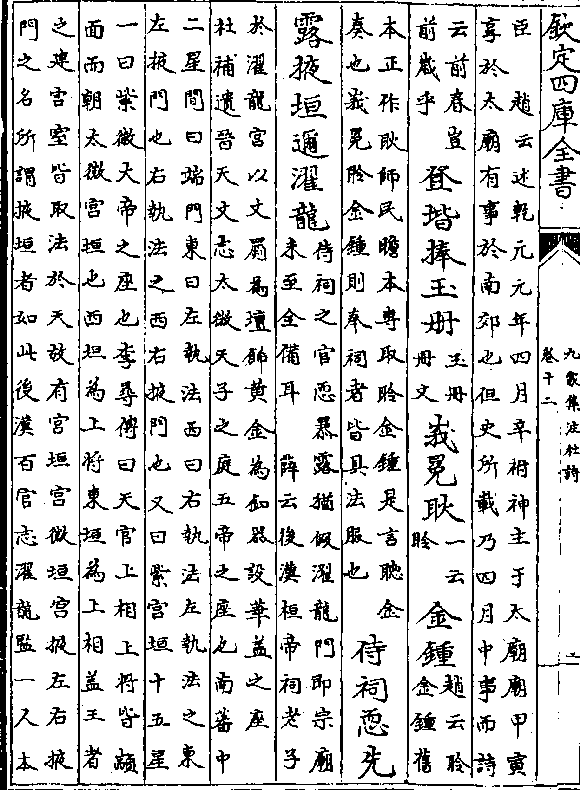 欽定四庫全書
九家集注杜詩
卷十二
臣 趙云述乾元元年四月辛祔神主于太廟廟甲寅
享於太廟有事於南郊也但史所載乃四月中事而詩
云前春豈
前歲乎
登堦捧玉冊
玉冊
冊文
峩冕耿
一云
聆
金鍾
趙云聆
金鍾舊
本正作耿師民瞻本專取聆金鍾是言聰金
奏也峩冕聆金鍾則奉祠者皆具法服也
侍祠恧先
露掖垣邇濯龍
侍祠之官恧暴露猶假濯龍門即宗廟
未至全備耳 薛云後漢桓帝祠老子
於濯龍宮以文罽為壇飾黄金為釦器設華蓋之座
杜補遺晉天文志太微天子之庭五帝之座也南蕃中
二星間曰端門東曰左執法西曰右執法左執法之東
左掖門也右執法之西右掖門也又曰紫宮垣十五星
一曰紫微天帝之座也李尋傳曰天官上相上將皆顓
面而朝太微宮垣也西垣為上將東垣為上相蓋王者
之建宮室皆取法於天故有宮垣宮微垣宮掖左右掖
門之名所謂掖垣者如此後漢百官志濯龍監一人本